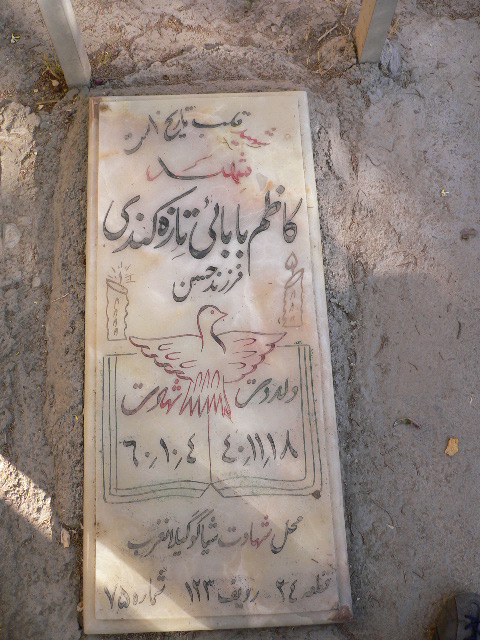 قلب تاریخ است
شهید
شهید
کاظم بابائی تازه کندی
فرزند حسن
ولادت شهادت
۴۰٫۱۱٫۱۸ ۶۰٫۱۰٫۴
محل شهادت شیاکو گیلانغرب
قطعه ۲۴ ردیف ۱۲۳ شماره ۷۵